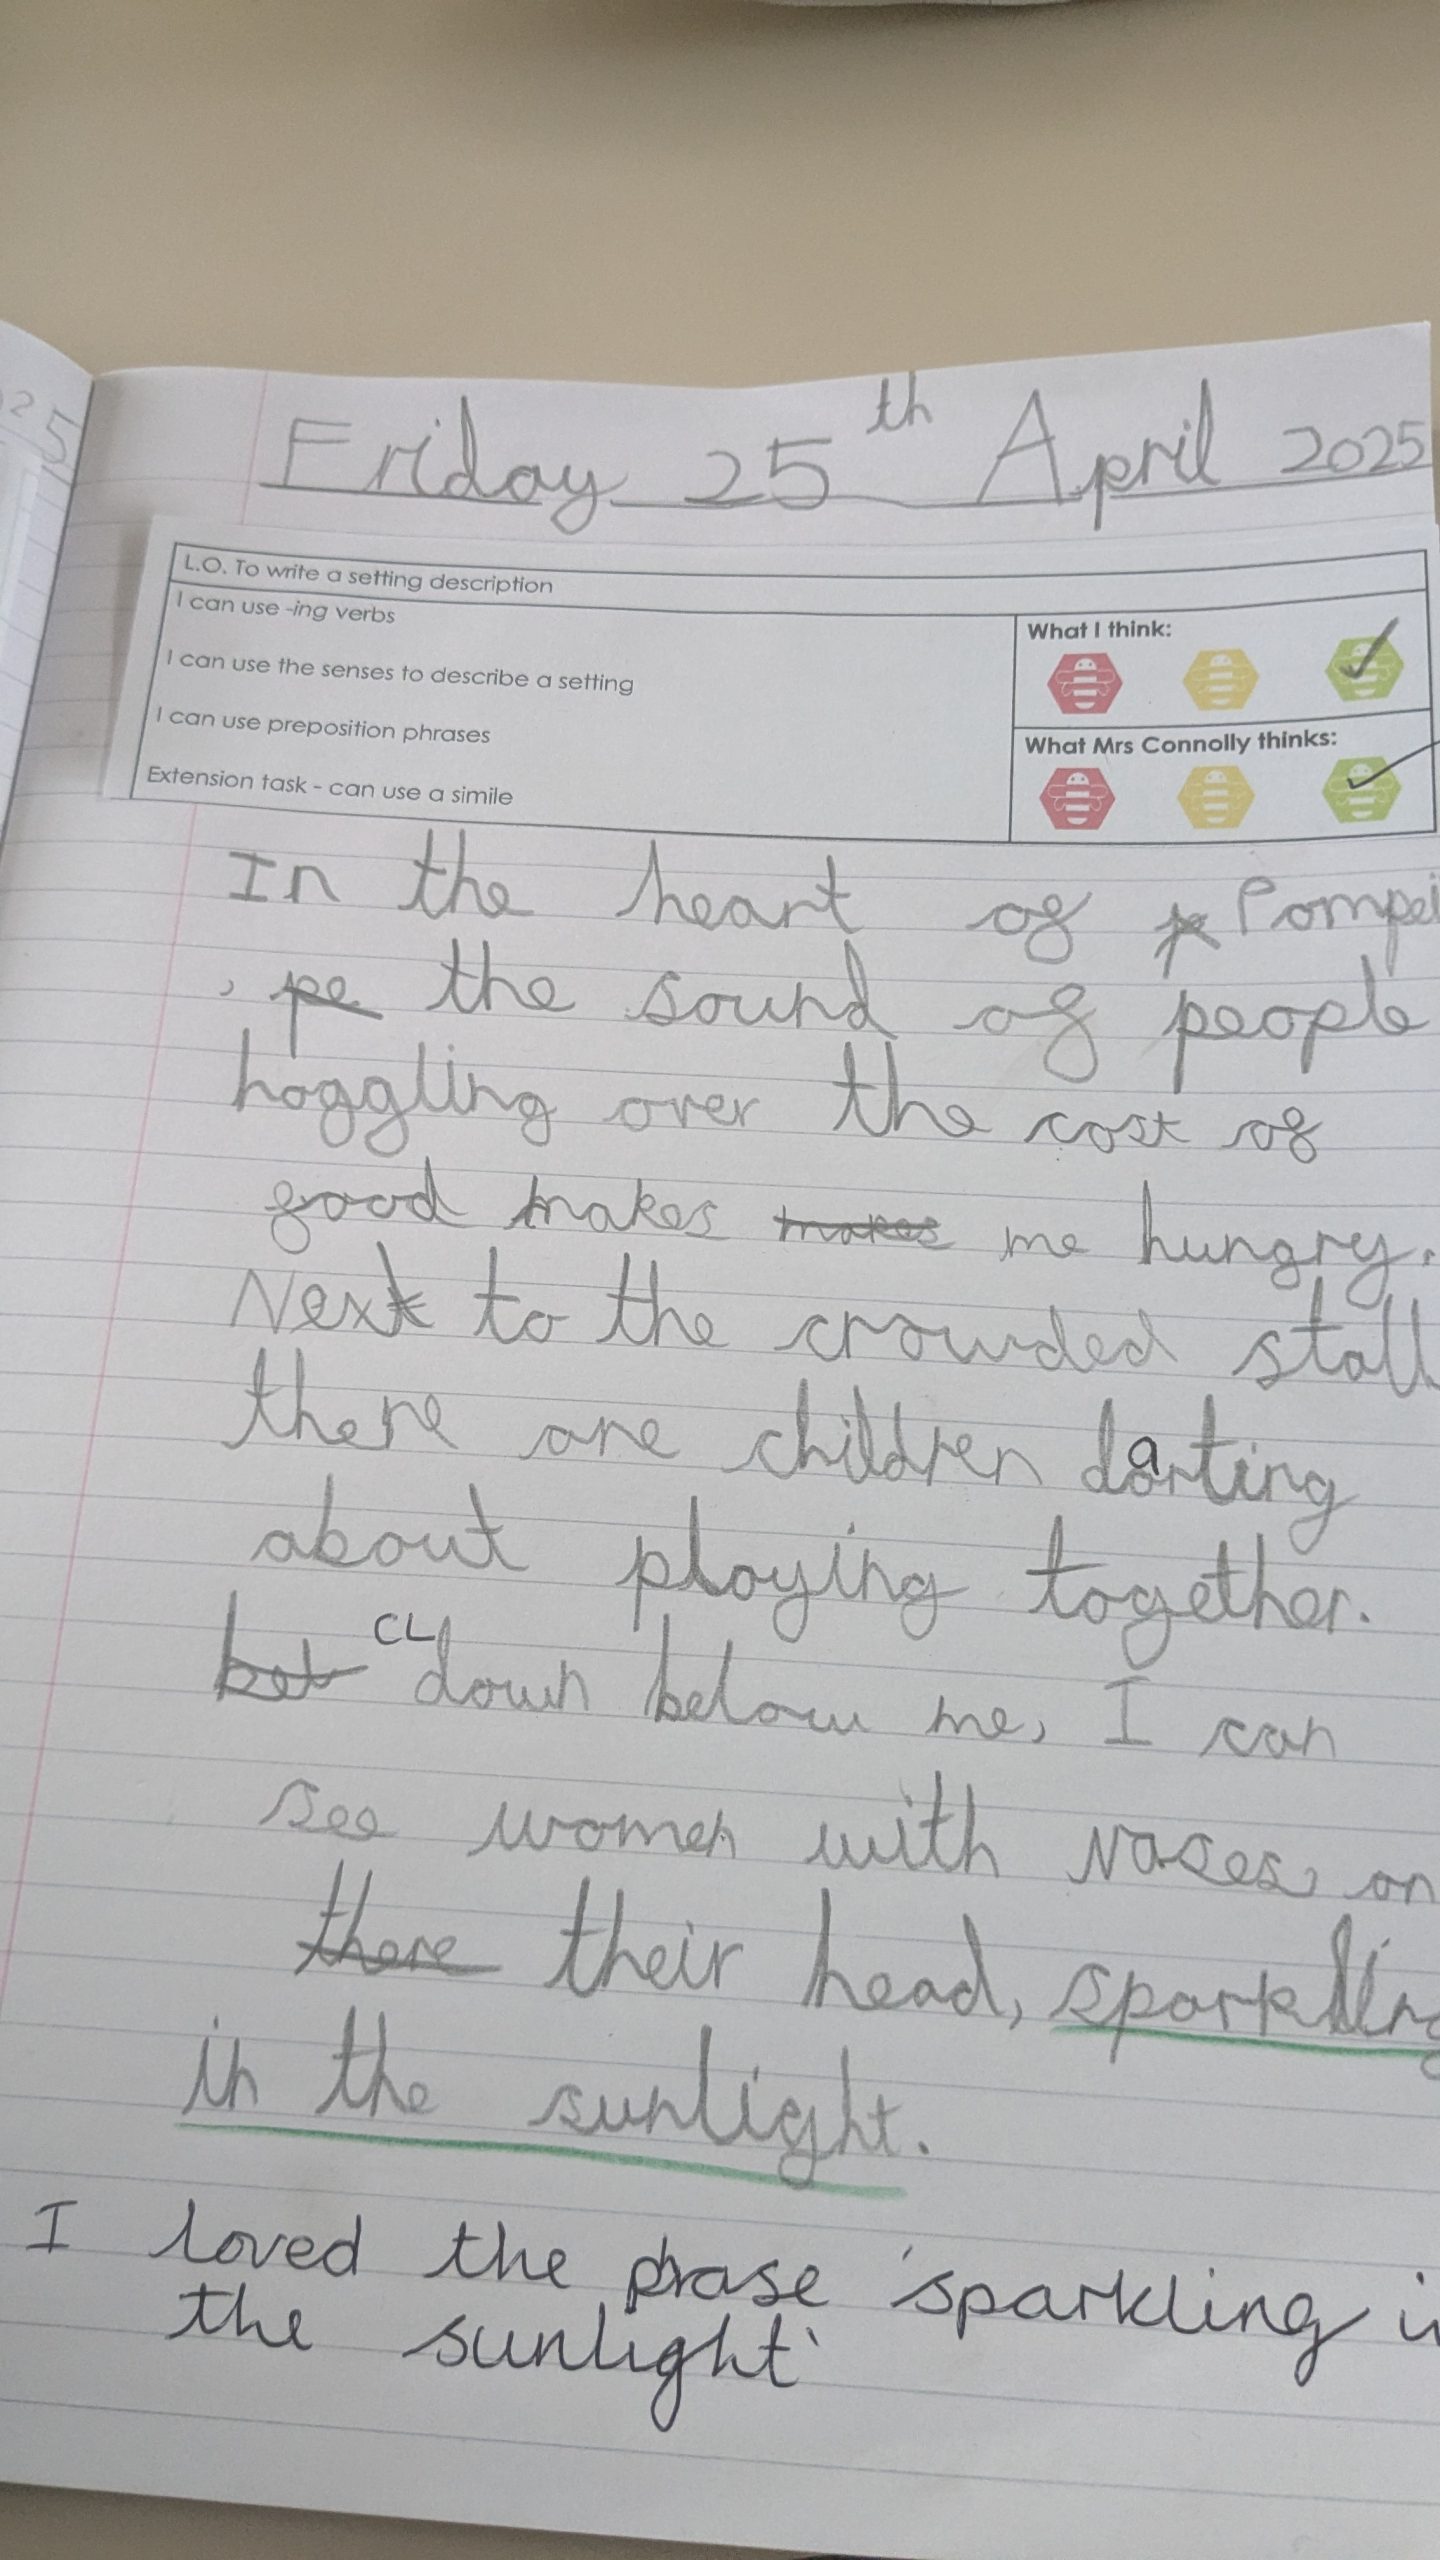 25
Friday 25th April 2025
L.O. To write a setting description
I can use -ing verbs
I can use the senses to describe a setting
I can use preposition phrases
Extension task - can use a simile
What I think:
What Mrs Connolly thinks:
In the heart of p Pompei
, pe the sound of people
haggling over the cost of
food makes makes me hungry.
Next to the crowded stall
there are children darting
a
about playing together.
CL
bet down below me, I can
see women with vases on
there their head, sparkling
in the sunlight.
I loved the phrase 'sparkling in
the sunlight'